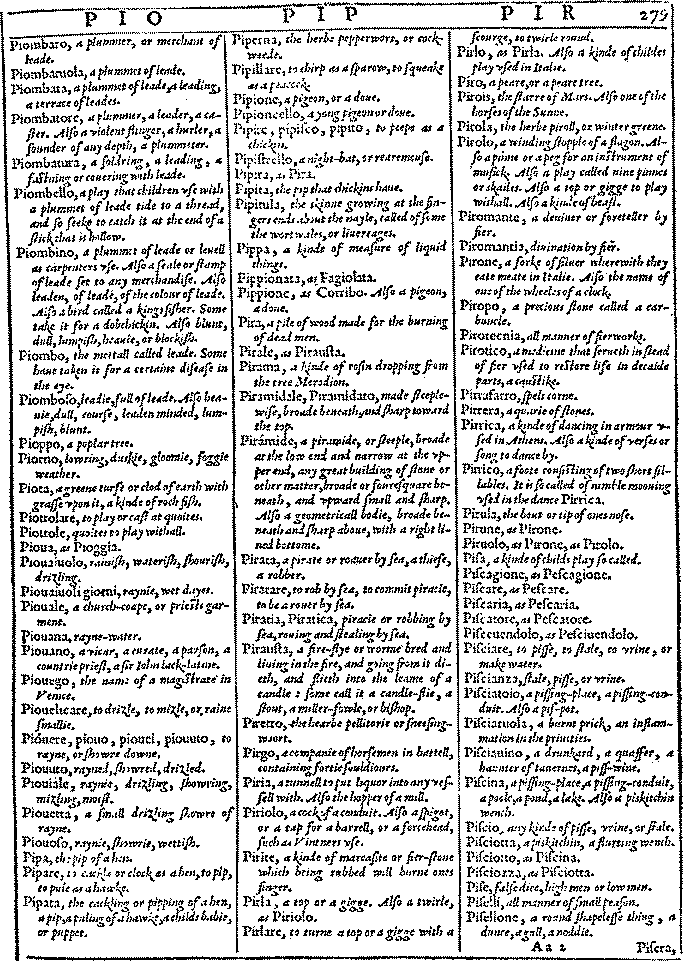 PIO PIP PIR 279
Piombaro, a plummer, or merchant of
leade.
Piombaruola, a plummet of leade.
Piombata, a plummet of leade, a leading,
a terrace of leades.
Piombatore, a plummer, a leader, a ca-
ster. Also a violent flinger, a hurler, a
sounder of any depth, a plummeter.
Piombatura, a soldring, a leading, a
fastning or covering with leade.
Piombello, a play that children vse with
a plummet of leade tide to a thread,
and so seeke to catch it at the end of a
stick that is hollow.
Piombino, a plummet of leade or leuell
as carpenters vse. Also a seale or stamp
of leade set to any merchandise. Also
leaden, of leade, of the colour of leade.
Also a bird called a kings fisher. Some
take it for a dobchickin. Also blunt,
dull, lumpish, heauie, or blockish.
Piombo, the mettall called leade. Some
haue taken it for a certaine disease in
the eye.
Piomboso, leadie, full of leade. Also hea-
uie, dull, course, leaden minded, lum-
pish, blunt.
Pioppo, a poplar tree.
Piorno, lowring, duskie, gloomie, foggie
weather.
Piota, a greene turfe or clod of earth with
grasse vpon it, a kinde of roch fish.
Piottolare, to play or cast at quoites.
Piottole, quoites to play withall.
Pioua, as Pioggia.
Piouaiuolo, rainish, waterish, showrish,
drizling.
Piouaiuoli giorni, raynie, wet dayes.
Piouale, a church-cope, or priests gar-
ment.
Piouana, rayne-water.
Piouano, a vicar, a curate, a parson, a
countrie priest, a sir Iohn lack-latine.
Piouego, the name of a magistrate in
Venice.
Piouelicare, to drizle, to mizle, or raine
smallie.
Pióuere, piouo, piouei, piouuto, to
rayne, or showre downe.
Piouuto, rayned, showred, drizled.
Piouiale, raynie, drizling, showring,
mizling, moist.
Piouetta, a small drizling showre of
rayne.
Piouoso, raynie, showrie, wettish.
Pipa, the pip of a hen.
Pipare, to cackle or clock as a hen, to pip,
to puie as a hawke.
Pipata, the cackling or pipping of a hen,
a pip, a puling of a hawke, a childs babie,
or puppet.
Piperna, the herbe pepperwort, or cock-
weede.
Pipillare, to chirp as a sparow, to squeake
as a peacock
Pipione, a pigeon, or a doue.
Pipioncello, a yong pigeon or doue.
Pipire, pipisco, pipito, to peepe as a
chickin.
Pipistrello, a night-bat, or rearemouse.
Pipita, as Pira.
Pipita, the pip that chickins haue.
Pipitula, the skinne growing at the fin-
gers ends about the nayle, called of some
the wortwales, or liuereages.
Pippa, a kinde of measure of liquid
things.
Pippionata, as Fagiolata.
Pippione, as Corribo. Also a pigeon,
a doue.
Pira, a pile of wood made for the burning
of dead men.
Pirale, as Pirausta.
Pirama, a kinde of rosin dropping from
the tree Meradion.
Piramidale, Piramidato, made steeple-
wise, broade beneath, and sharp toward
the top.
Pirámide, a piramide, or steeple, broade
at the low end and narrow at the vp-
per end, any great building of stone or
other matter, broade or fouresquare be-
neath, and vpward small and sharp.
Also a geometricall bodie, broade be-
neath and sharp aboue, with a right li-
ned bottome.
Pirata, a pirate or rouer by sea, a theefe,
a robber.
Piratare, to rob by sea, to commit piracie,
to be a rouer by sea.
Piratia, Piratica, piracie or robbing by
sea, rouing and stealing by sea.
Pirausta, a fire-flye or worme bred and
liuing in the fire, and going from it di-
eth, and flieth into the leame of a
candle: some call it a candle-flie, a
stout, a miller-fowle, or bishop.
Piretro, the hearbe pellitorie or sneesing-
wort.
Pirgo, a companie of horsemen in battell,
containing fortie souldiours.
Piria, a tunnell to put liquor into any ves-
sell with. Also the hopper of a mill.
Piriolo, a cock of a conduit. Also a spigot,
or a tap for a barrell, or a forehead,
such as Vintners vse.
Pirite, a kinde of marcasite or fier-stone
which being rubbed will burne ones
finger.
Pirla, a top or a gigge. Also a twirle,
as Piriolo.
Pirlare, to turne a top or a gigge with a
scourge, to twirle round.
Pirlo, as Pirla. Also a kinde of childes
play vsed in Italie.
Piro, a peare, or a peare tree.
Pirois, the starre of Mars. Also one of the
horses of the Sunne.
Pirola, the herbe piroll, or winter greene.
Pirolo, a winding stopple of a flagon. Al-
so a pinne or a peg for an instrument of
musick. Also a play called nine pinnes
or skailes. Also a top or gigge to play
withall. Also a kinde of beast.
Piromante, a deuiner or foreteller by
fier.
Piromantia, diuination by fier.
Pirone, a forke of siluer wherewith they
eate meate in Italie. Also the name of
one of the wheeles of a clock
Piropo, a precious stone called a car-
buncle.
Pirotecnia, all manner of fierworks.
Pirotico, a medicine that serueth in stead
of fier vsed to restore life in decaide
parts, a caustike.
Pirrafarro, spelt corne.
Pirrera, a quarie of stones.
Pirrica, a kinde of dancing in armour v-
sed in Athens. Also a kinde of verses or
song to dance by.
Pirrico, a foote consisting of two short sil-
lables. It is so called of nimble moouing
vsed in the dance Pirrica.
Pirula, the bout or tip of ones nose.
Pirune, as Pirone.
Piruolo, as Pirone, as Pirolo.
Pisa, a kinde of childs play so called.
Piscagione, as Pescagione.
Piscare, as Pescare.
Piscaria, as Pescaria.
Piscatore, as Pescatore.
Pisceuendolo, as Pesciuendolo.
Pisciare, to pisse, to stale, to vrine, or
make water.
Piscianza, stale, pisse, or vrine.
Pisciatoio, a pissing-place, a pissing-con-
duit. Also a pis-pot.
Pisciaruola, a burnt prick, an inflam-
mation in the priuities.
Pisciauino, a drunkard, a quaffer, a
haunter of tauernes, a piss-wine.
Piscina, a pissing-place, a pissing-conduit,
a poole, a pond, a lake. Also a piskitchin
wench.
Piscio, any kinde of pisse, vrine, or stale.
Pisciotta, a piskitchin, a flurting wench.
Pisciotto, as Piscina.
Pisciozza, as Pisciotta.
Pise, false dice, high men or low men.
Piselli, all manner of small peason.
Pisellone, a round shapelesse thing, a
dunce, a gull, a noddie.
Aa 2 Pisera,